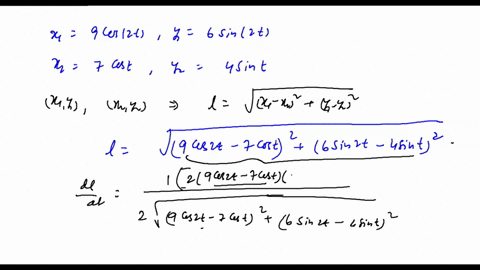 x₁ = 9 Cos(2t) , y₁ = 6 Sin(2t)
x₂ = 7 Cost , y₂ = 4 Sin t
(x₁,y₁), (x₂,y₂) ⇒ l = √((x₁-x₂)² + (y₁-y₂)²)
l = √((9 Cos2t - 7 Cost)² + (6 Sin2t - 4 Sint)²) .
dl/dt = 1 [2(9 Cos2t - 7 Cost)( / 2 √((9 Cos2t - 7 Cost)² + (6 Sin2t - 4 Sint)²)